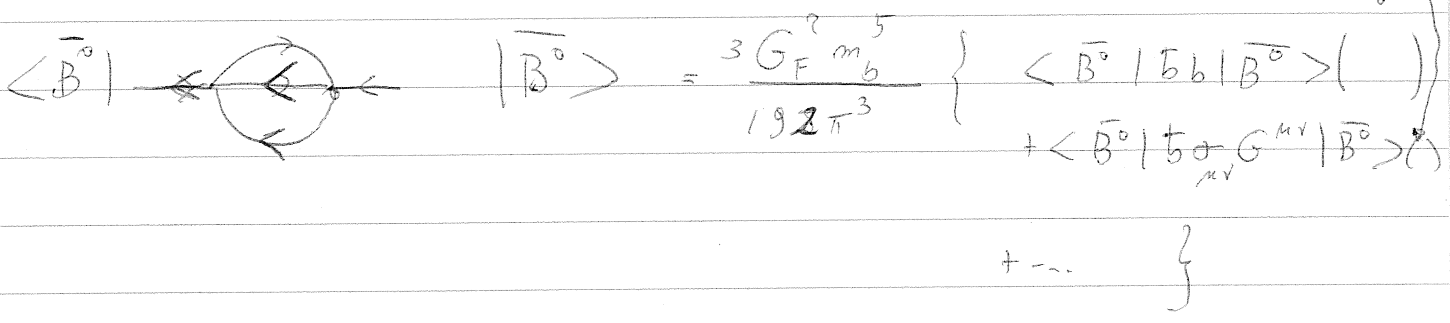 <B̄⁰| |B̄⁰> = 3 G_F² m_b⁵ / 192 π³ { <B̄⁰| b̄ b |B̄⁰> ( )
+ <B̄⁰| b̄ σ_μν G^μν |B̄⁰> ( )
+ ... }